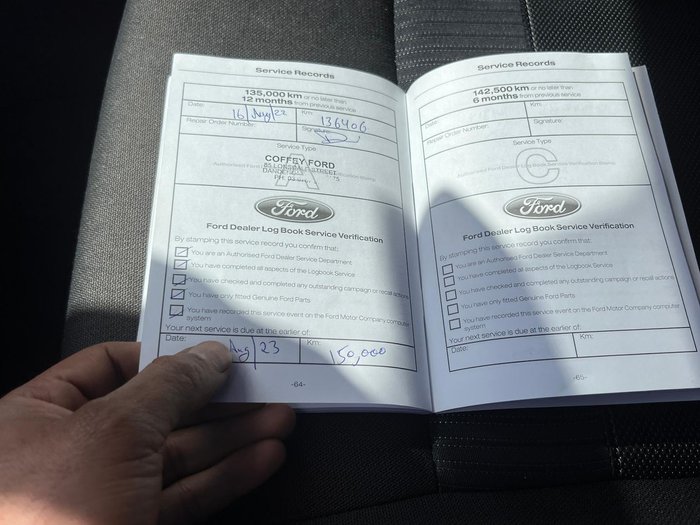 Service Records
135,000 km or no later than
12 months from previous service
Date:
16 / Aug / 22
Km:
136406
Repair Order Number:
Signature:
Service Type
COFFEY FORD
DANDENONG
A
Ford
Ford Dealer Log Book Service Verification
By stamping this service record you confirm that:
You are an Authorised Ford Dealer Service Department
You have completed all aspects of the Logbook Service
You have checked and completed any outstanding campaign or recall actions
You have only fitted Genuine Ford Parts
You have recorded this service event on the Ford Motor Company computer
system
Your next service is due at the earlier of:
Date:
Aug / 23
Km:
150,000
-64-
Service Records
142,500 km or no later than
6 months from previous service
Date:
Km:
Repair Order Number:
Signature:
Service Type
Authorised Ford Dealer Log Book Service Verification Stamp
C
Ford
Ford Dealer Log Book Service Verification
By stamping this service record you confirm that:
You are an Authorised Ford Dealer Service Department
You have completed all aspects of the Logbook Service
You have checked and completed any outstanding campaign or recall actions
You have only fitted Genuine Ford Parts
You have recorded this service event on the Ford Motor Company computer
system
Your next service is due at the earlier of:
Date:
Km:
-65-